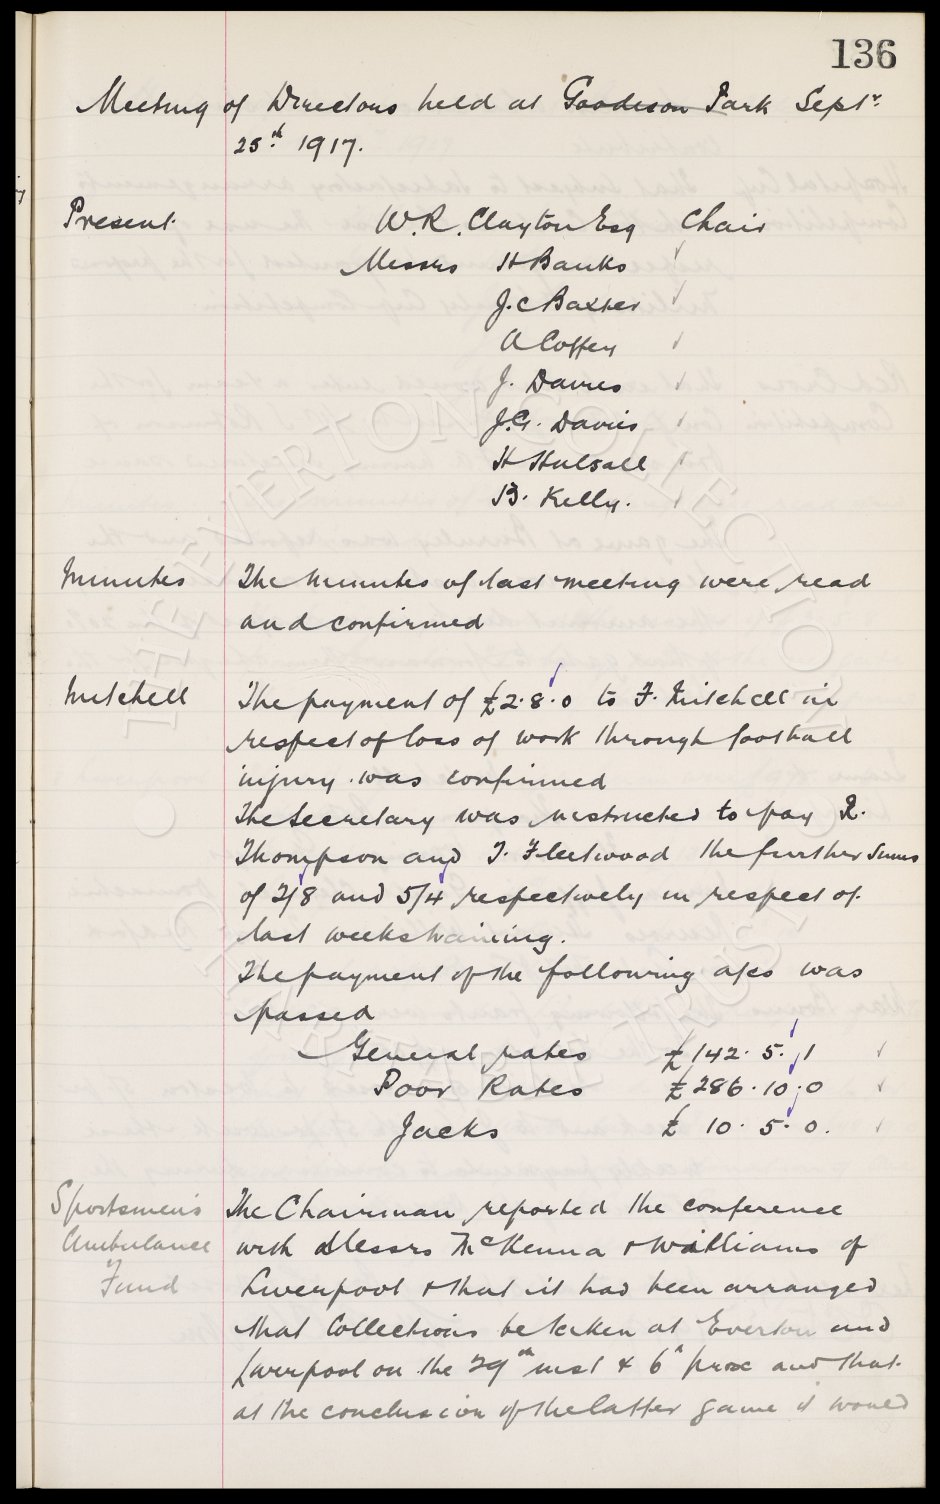 136
Meeting of Directors held at Goodison Park Septr
25th 1917.
Present. W.R. Clayton Esq Chair
Messrs H Banks
J.C Baxter
A Coffey
J. Davies
J.G. Davies
H Halsall
B. Kelly.
Minutes The Minutes of last meeting were read
and confirmed
Mitchell The payment of £2.8.0 to F. Mitchell in
respect of loss of work through football
injury was confirmed
The Secretary was instructed to pay R.
Thompson and T. Fleetwood the further sums
of 2/8 and 5/4 respectively in respect of
last weeks training.
The payment of the following a/cs was
passed
General rates £142. 5. 1
Poor Rates £286.10.0
Jacks £ 10. 5. 0.
Sportsmen's The Chairman reported the conference
Ambulance with Messrs McKenna & Williams of
Fund Liverpool & that it had been arranged
that Collections be taken at Everton and
Liverpool on the 29th inst & 6th prox and that
at the conclusion of the latter game it would
THE EVERTON COLLECTION CHARITABLE TRUST